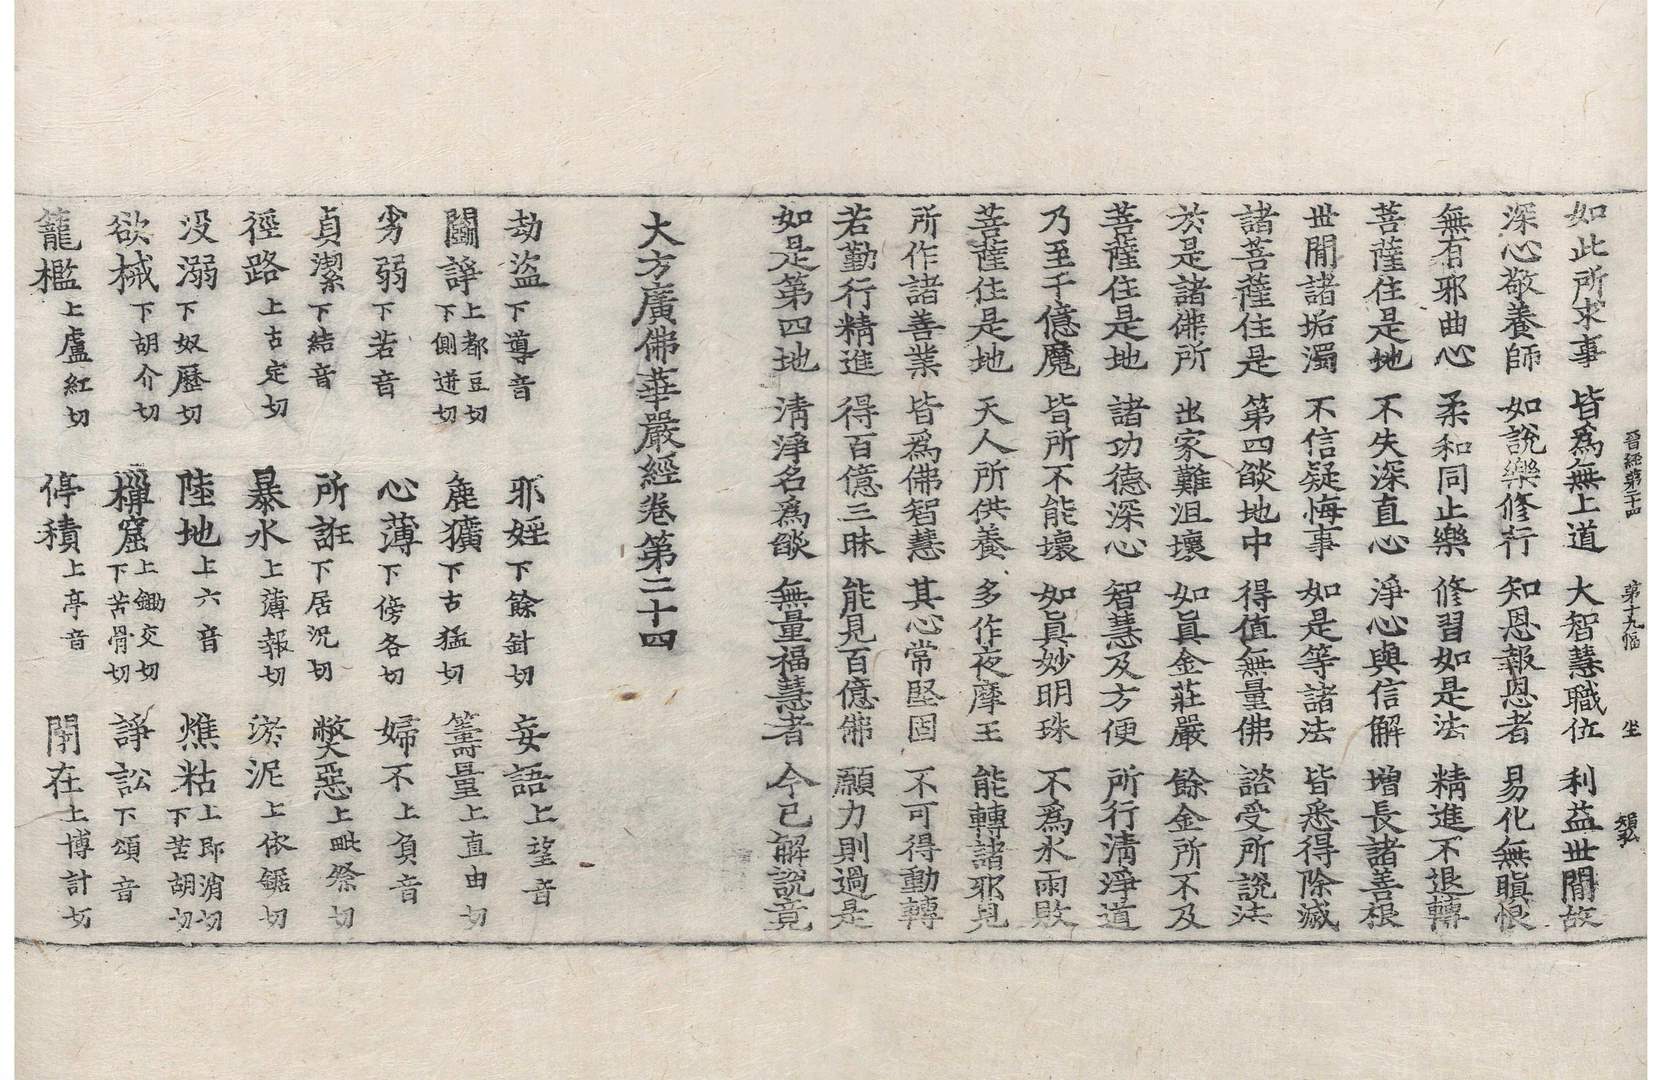 晉經第二十四　第十九幅　坐
如此所求事　皆爲無上道　大智慧職位　利益世間故
深心敬養師　如說樂修行　知恩報恩者　易化無瞋恨
無有邪曲心　柔和同止樂　修習如是法　精進不退轉
菩薩住是地　不失深直心　淨心與信解　增長諸善根
世間諸垢濁　不信疑悔事　如是等諸法　皆悉得除滅
諸菩薩住是　第四燄地中　得值無量佛　諮受所說法
於是諸佛所　出家難沮壞　如眞金莊嚴　餘金所不及
菩薩住是地　諸功德深心　智慧及方便　所行清淨道
乃至千億魔　皆所不能壞　如眞妙明珠　不爲水雨敗
菩薩住是地　天人所供養　多作夜摩王　能轉諸邪見
所作諸善業　皆爲佛智慧　其心常堅固　不可得動轉
若勤行精進　得百億三昧　能見百億佛　願力則過是
如是第四地　清淨名爲燄　無量福慧者　今已解說竟
大方廣佛華嚴經卷第二十四
劫盜下導音　邪婬下餘針切　妄語上望音
鬪諍上都豆切下側迸切　麁獷下古猛切　籌量上直由切
劣弱下若音　心薄下傍各切　婦不上負音
貞潔下結音　所誑下居況切　獘惡上毗祭切
徑路上古定切　暴水上薄報切　淤泥上依鋸切
没溺下奴歷切　陸地上六音　燋枯上即消切下苦胡切
欲械下胡介切　樔窟上鋤交切下苦骨切　諍訟下頌音
籠檻上盧紅切　停積上亭音　閇在上博計切